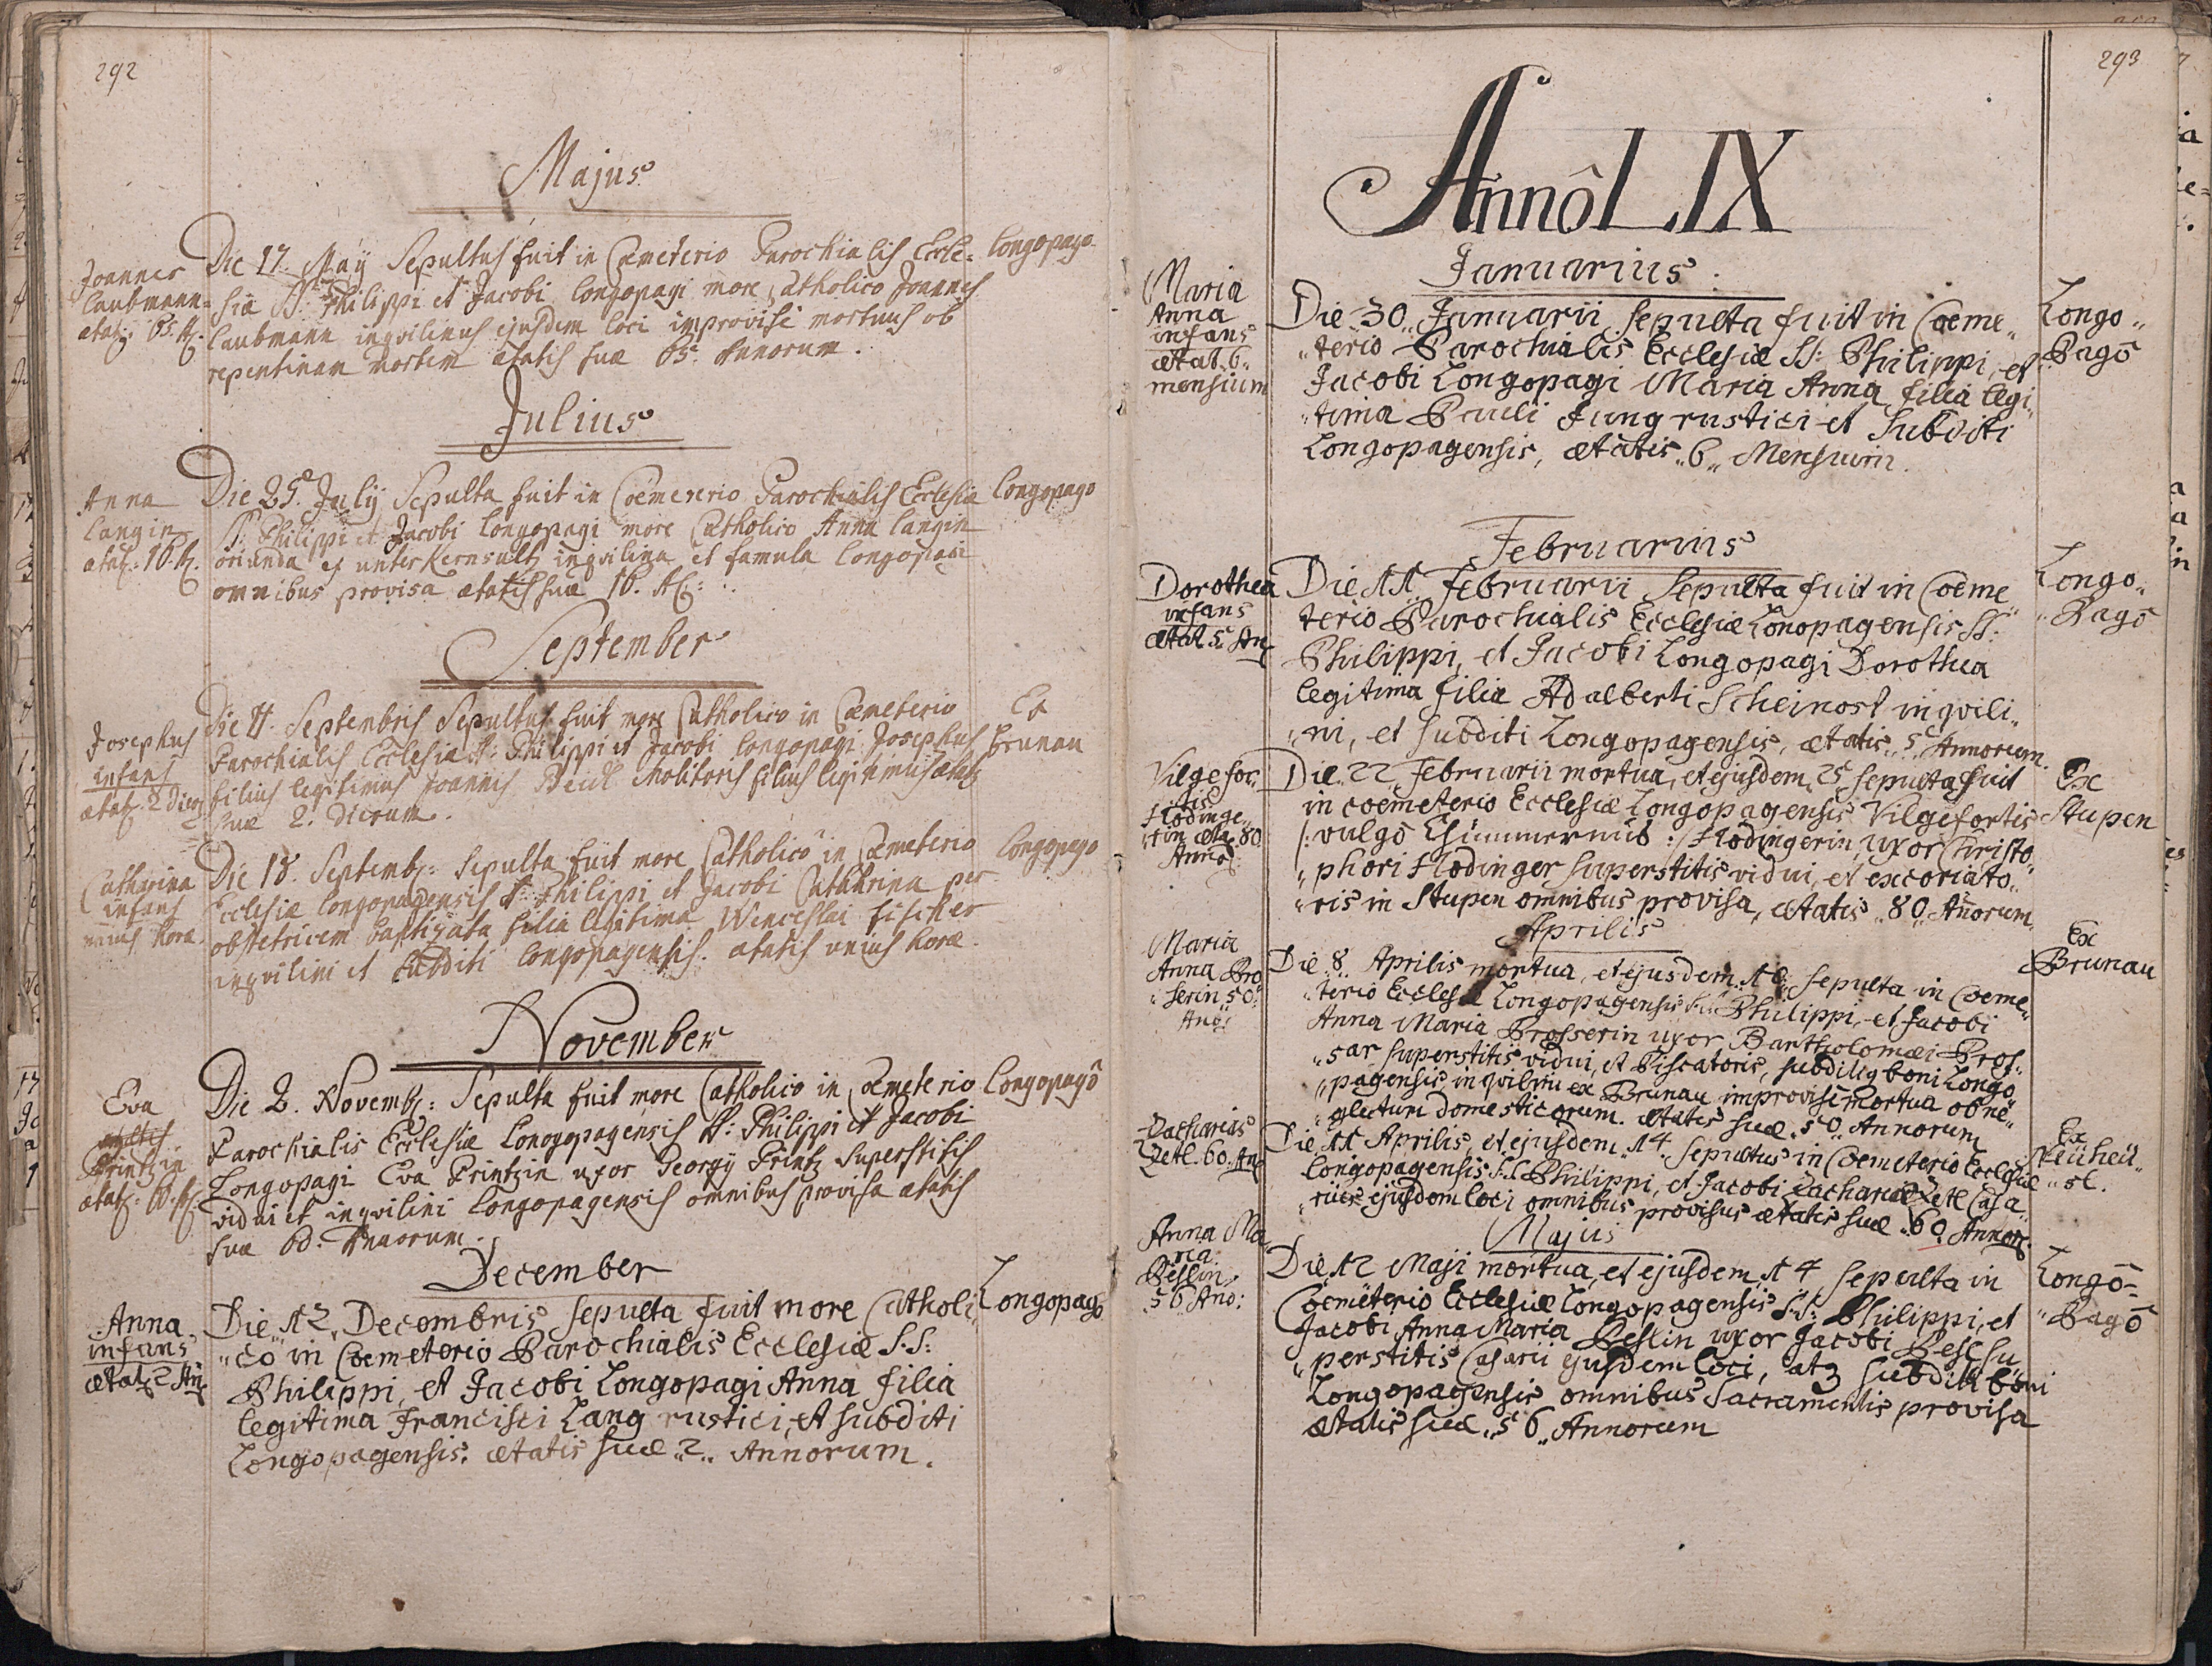 292
Majus
Joannes
Laubmann
ætat: 65. A:
Die 17. Maÿ Sepultus fuit in Cæmeterio Parochialis Eccle-
siæ SS. Philippi et Jacobi Longopagi more Catholico Joannes
Laubmann inqvilinus ejusdem loci improvisè mortuus ob
repentinam mortem ætatis suæ 65. Annorum.
Longopago
Julius
Anna
Langin
ætat: 16. A.
Die 25. Julÿ Sepulta fuit in Coemeterio Parochialis Ecclesiæ
SS. Philippi et Jacobi Longopagi more Catholico Anna Langin
oriunda ex unter Kernsaltz inqvilina et famula Longopagi
omnibus provisa ætatis suæ 16. A:
Longopago
September
Josephus
infans
ætat. 2 dier
Die 4. Septembris Sepultus fuit more Catholico in Cæmeterio
Parochialis Ecclesiæ SS: Philippi et Jacobi Longopagi Josephus
filius legitimus Joannis Beidl Molitoris filius legitimus ætat
suæ 2. dierum.
Ex
Brunau
Catharina
infans
unius horæ
Die 18. Septemb: Sepulta fuit more Catholico in Cæmeterio
Ecclesiæ Longopagensis SS: Philippi et Jacobi Catharina per
obstetricem baptizata filia legitima Wenceslai Fischer
inqvilini et subditi Longopagensis. ætatis unius horæ.
Longopago
November
Eva
Printzin
ætat: 60. A:
Die 2. Novemb: Sepulta fuit more Catholico in Cæmeterio
Parochialis Ecclesiæ Lonogopagensis SS: Philippi et Jacobi
Longopagi Eva Printzin uxor Georgÿ Printz Superstitis
vidui et inqvilini Longopagensis omnibus provisa ætatis
suæ 60. Annorum.
Longopagô
December
Anna
infans
ætat 2 An
Die 12 Decembris sepulta fuit more Catholi
"co in Coemeterio Parochialis Ecclesiæ S.S:
Philippi, et Jacobi Longopagi Anna filia
legitima Francisci Lang rustici, et subditi
Longopagensis. ætatis suæ "2" Annorum.
Longopago
293
Annô LIX
Januarius.
Maria
Anna
infans
ætat. 6
mensium
Die 30 Januarii sepulta fuit in Coeme"
"terio Parochialis Ecclesiæ SS: Philippi, et
Jacobi Longopagi Maria Anna filia legi"
"tima Pauli Jung rustici et subditi
Longopagensis, ætatis "6" Mensium.
Longo"
"Pagô
Februarius
Dorothea
infans
ætat 5 An
Die 11 Februarii Sepulta fuit in Coeme"
terio Parochialis Ecclesiæ Lonopagensis SS:
Philippi, et Jacobi Longopagi Dorothea
legitima filia Adalberti Scheinost inqvili"
"ni, et subditi Longopagensis, ætatis "5" Annorum.
Longo"
"Pagô
Vilgefor"
tis
Hodinge"
rin æta. 80
Anno:
Die 22 Februarii mortua, et ejusdem 25 sepulta fuit
in coemeterio Ecclesiæ Longopagensis Vilgefortis
/: vulgô Chümmernus :/ Hodingerin, uxor Christo"
"phori Hodinger superstitis vidui, et excoriato"
"ris in Stupen omnibus provisa, ætatis "80" Añorum.
Ex
Stupen
Aprilis
Maria
Anna Bro
"serin 50"
Ano:
Die 8 Aprilis mortua, et ejusdem 10 sepulta in Coeme"
"terio Ecclesiæ Longopagensis S.S: Philippi, et Jacobi
Anna Maria Brosserin uxor Bartholomæi Bros"
"sar superstitis vidui, et Piscatoris, subditiq boni Longo"
"pagensis, inqvilini ex Brunau improvise mortua ob ne"
"glectum domesticorum. ætatis suæ "50" Annorum
Ex
Brunau
Zacharias
Zetl. 60. An
Die 11 Aprilis, et ejusdem 14 sepultus in Coemeterio Ecclesiæ
Longopagensis S.S. Philippi, et Jacobi Zacharias Zetl Casa"
"rius ejusdem loci omnibus provisus ætatis suæ "60" Annor.
Ex
Neüheü"
"sl.
Majus
Anna Ma
ria
Beslin
56 Ano:
Die 12 Maji mortua, et ejusdem 14 sepulta in
Coemeterio Ecclesiæ Longopagensis S.S: Philippi, et
Jacobi Anna Maria Beslin uxor Jacobi Besl su"
"perstitis Casarii ejusdem loci, atq subditi boni
Longopagensis omnibus Sacramentis provisa
ætatis suæ "56" Annorum
Longô=
"Pagô